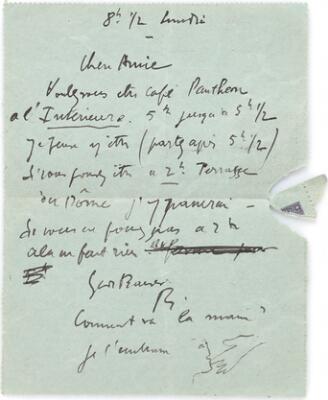 8h 1/2 lundi
Cher Amie
Voulez vous être café Panthéon
a l'Intérieure. 5h jusqu'a 5h 1/2
je peux y être (pas après 5h 1/2)
Si vous pouvez être a 2h Terrasse
du Dôme j'y passerai —
Si vous ne pouvez pas a 2h
cela ne fait rien
Comment va la main?
je l'embrasse